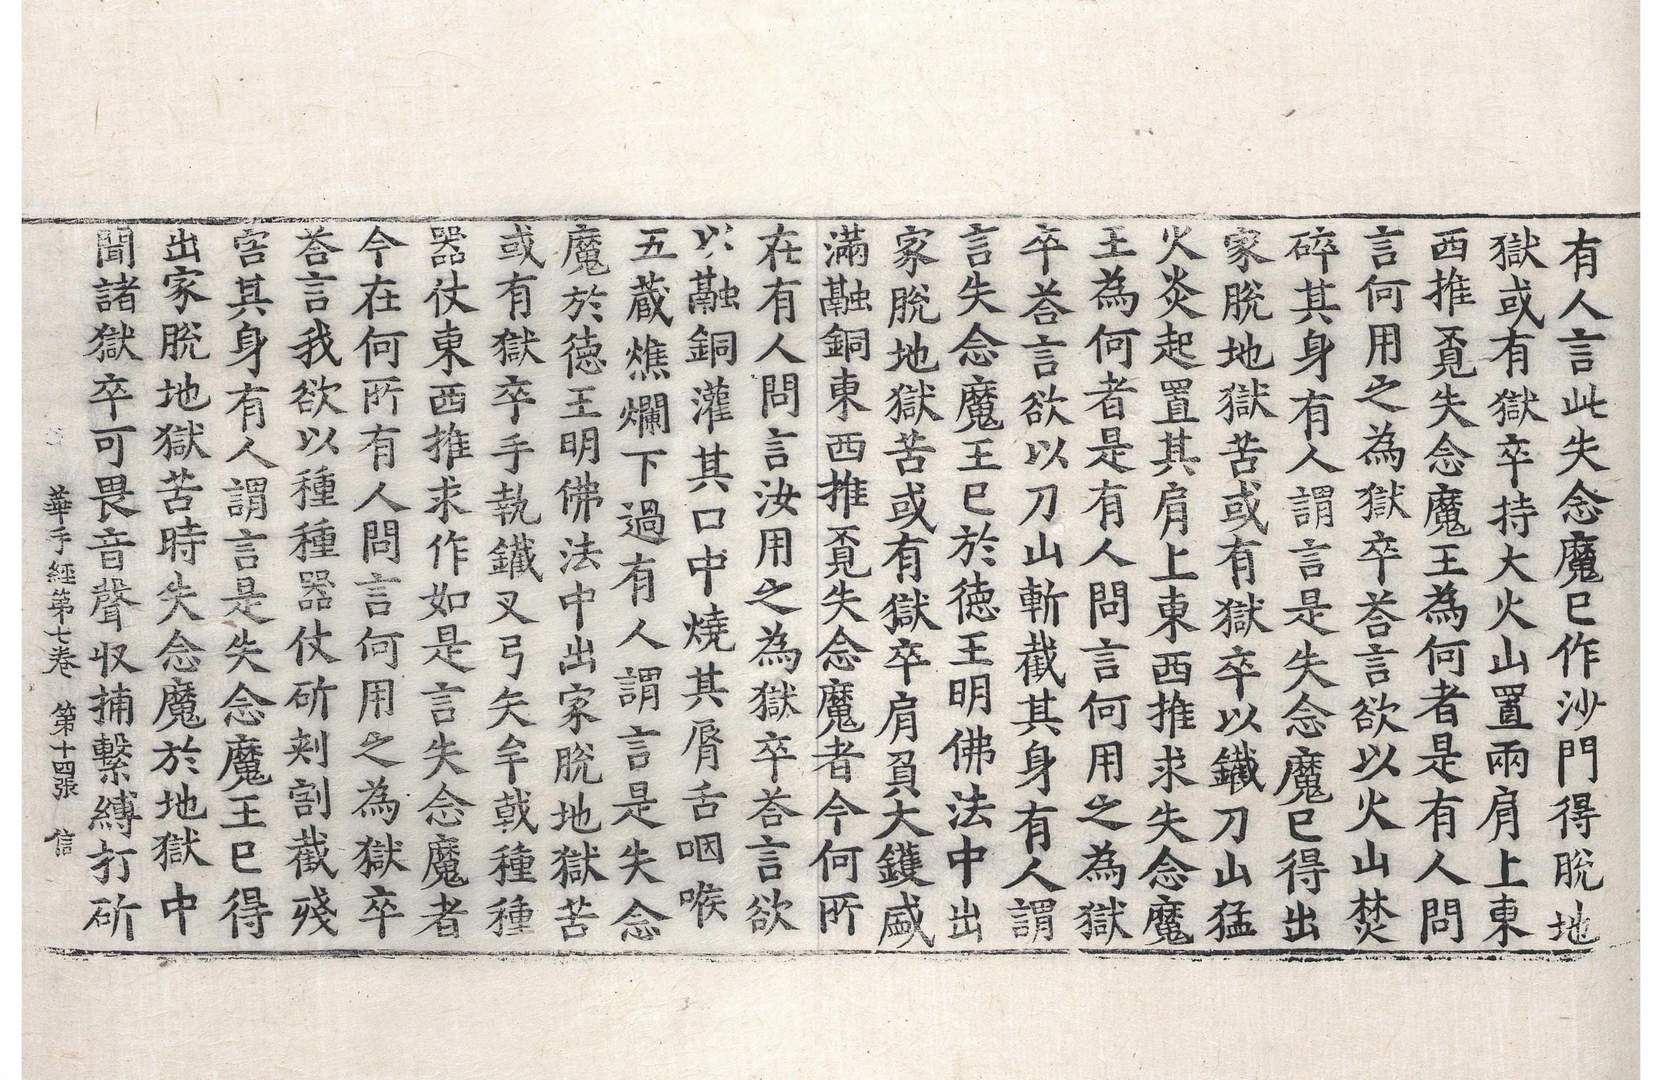 有人言此失念魔已作沙門得脫地
獄或有獄卒持大火山置兩肩上東
西推覔失念魔王為何者是有人問
言何用之為獄卒荅言欲以火山焚
碎其身有人謂言是失念魔已得出
家脫地獄苦或有獄卒以鐵刀山猛
火炎起置其肩上東西推求失念魔
王為何者是有人問言何用之為獄
卒荅言欲以刀山斬截其身有人謂
言失念魔王已於德王明佛法中出
家脫地獄苦或有獄卒肩負大鑊盛
滿融銅東西推覔失念魔者今何所
在有人問言汝用之為獄卒荅言欲
以融銅灌其口中燒其脣舌咽喉
五藏燋爛下過有人謂言是失念
魔於德王明佛法中出家脫地獄苦
或有獄卒手執鐵叉弓矢牟戟種種
器仗東西推求作如是言失念魔者
今在何所有人問言何用之為獄卒
荅言我欲以種種器仗斫刾割截殘
害其身有人謂言是失念魔王已得
出家脫地獄苦時失念魔於地獄中
聞諸獄卒可畏音聲収捕繫縛打斫
華手經第七卷 第十四張 信